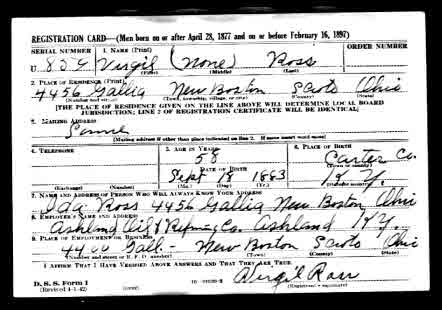 REGISTRATION CARD—(Men born on or after April 28, 1877 and on or before February 16, 1897)
SERIAL NUMBER 1. NAME (Print) ORDER NUMBER
U Virgil (None) Ross
(First) (Middle) (Last)
2. PLACE OF RESIDENCE (Print)
4456 Gallia New Boston Scioto Ohio
(Number and street) (Town, township, village, or city) (County) (State)
[THE PLACE OF RESIDENCE GIVEN ON THE LINE ABOVE WILL DETERMINE LOCAL BOARD
JURISDICTION; LINE 2 OF REGISTRATION CERTIFICATE WILL BE IDENTICAL]
3. MAILING ADDRESS
Same
[Mailing address if other than place indicated on line 2. If same insert word same]
4. TELEPHONE 5. AGE IN YEARS 6. PLACE OF BIRTH
58 Carter Co.
DATE OF BIRTH (Town or county)
Sept 18 1883 KY.
(Exchange) (Number) (Mo.) (Day) (Yr.) (State or country)
7. NAME AND ADDRESS OF PERSON WHO WILL ALWAYS KNOW YOUR ADDRESS
Ida Ross 4456 Gallia New Boston Ohio
8. EMPLOYER'S NAME AND ADDRESS
Ashland Oil & Refining Co. Ashland KY.
9. PLACE OF EMPLOYMENT OR BUSINESS
4400 Gall. - New Boston Scioto Ohio
(Number and street or R. F. D. number) (Town) (County) (State)
I AFFIRM THAT I HAVE VERIFIED ABOVE ANSWERS AND THAT THEY ARE TRUE.
D. S. S. Form 1
Virgil Ross
(Revised 4-1-42) (over) (Registrant's signature)